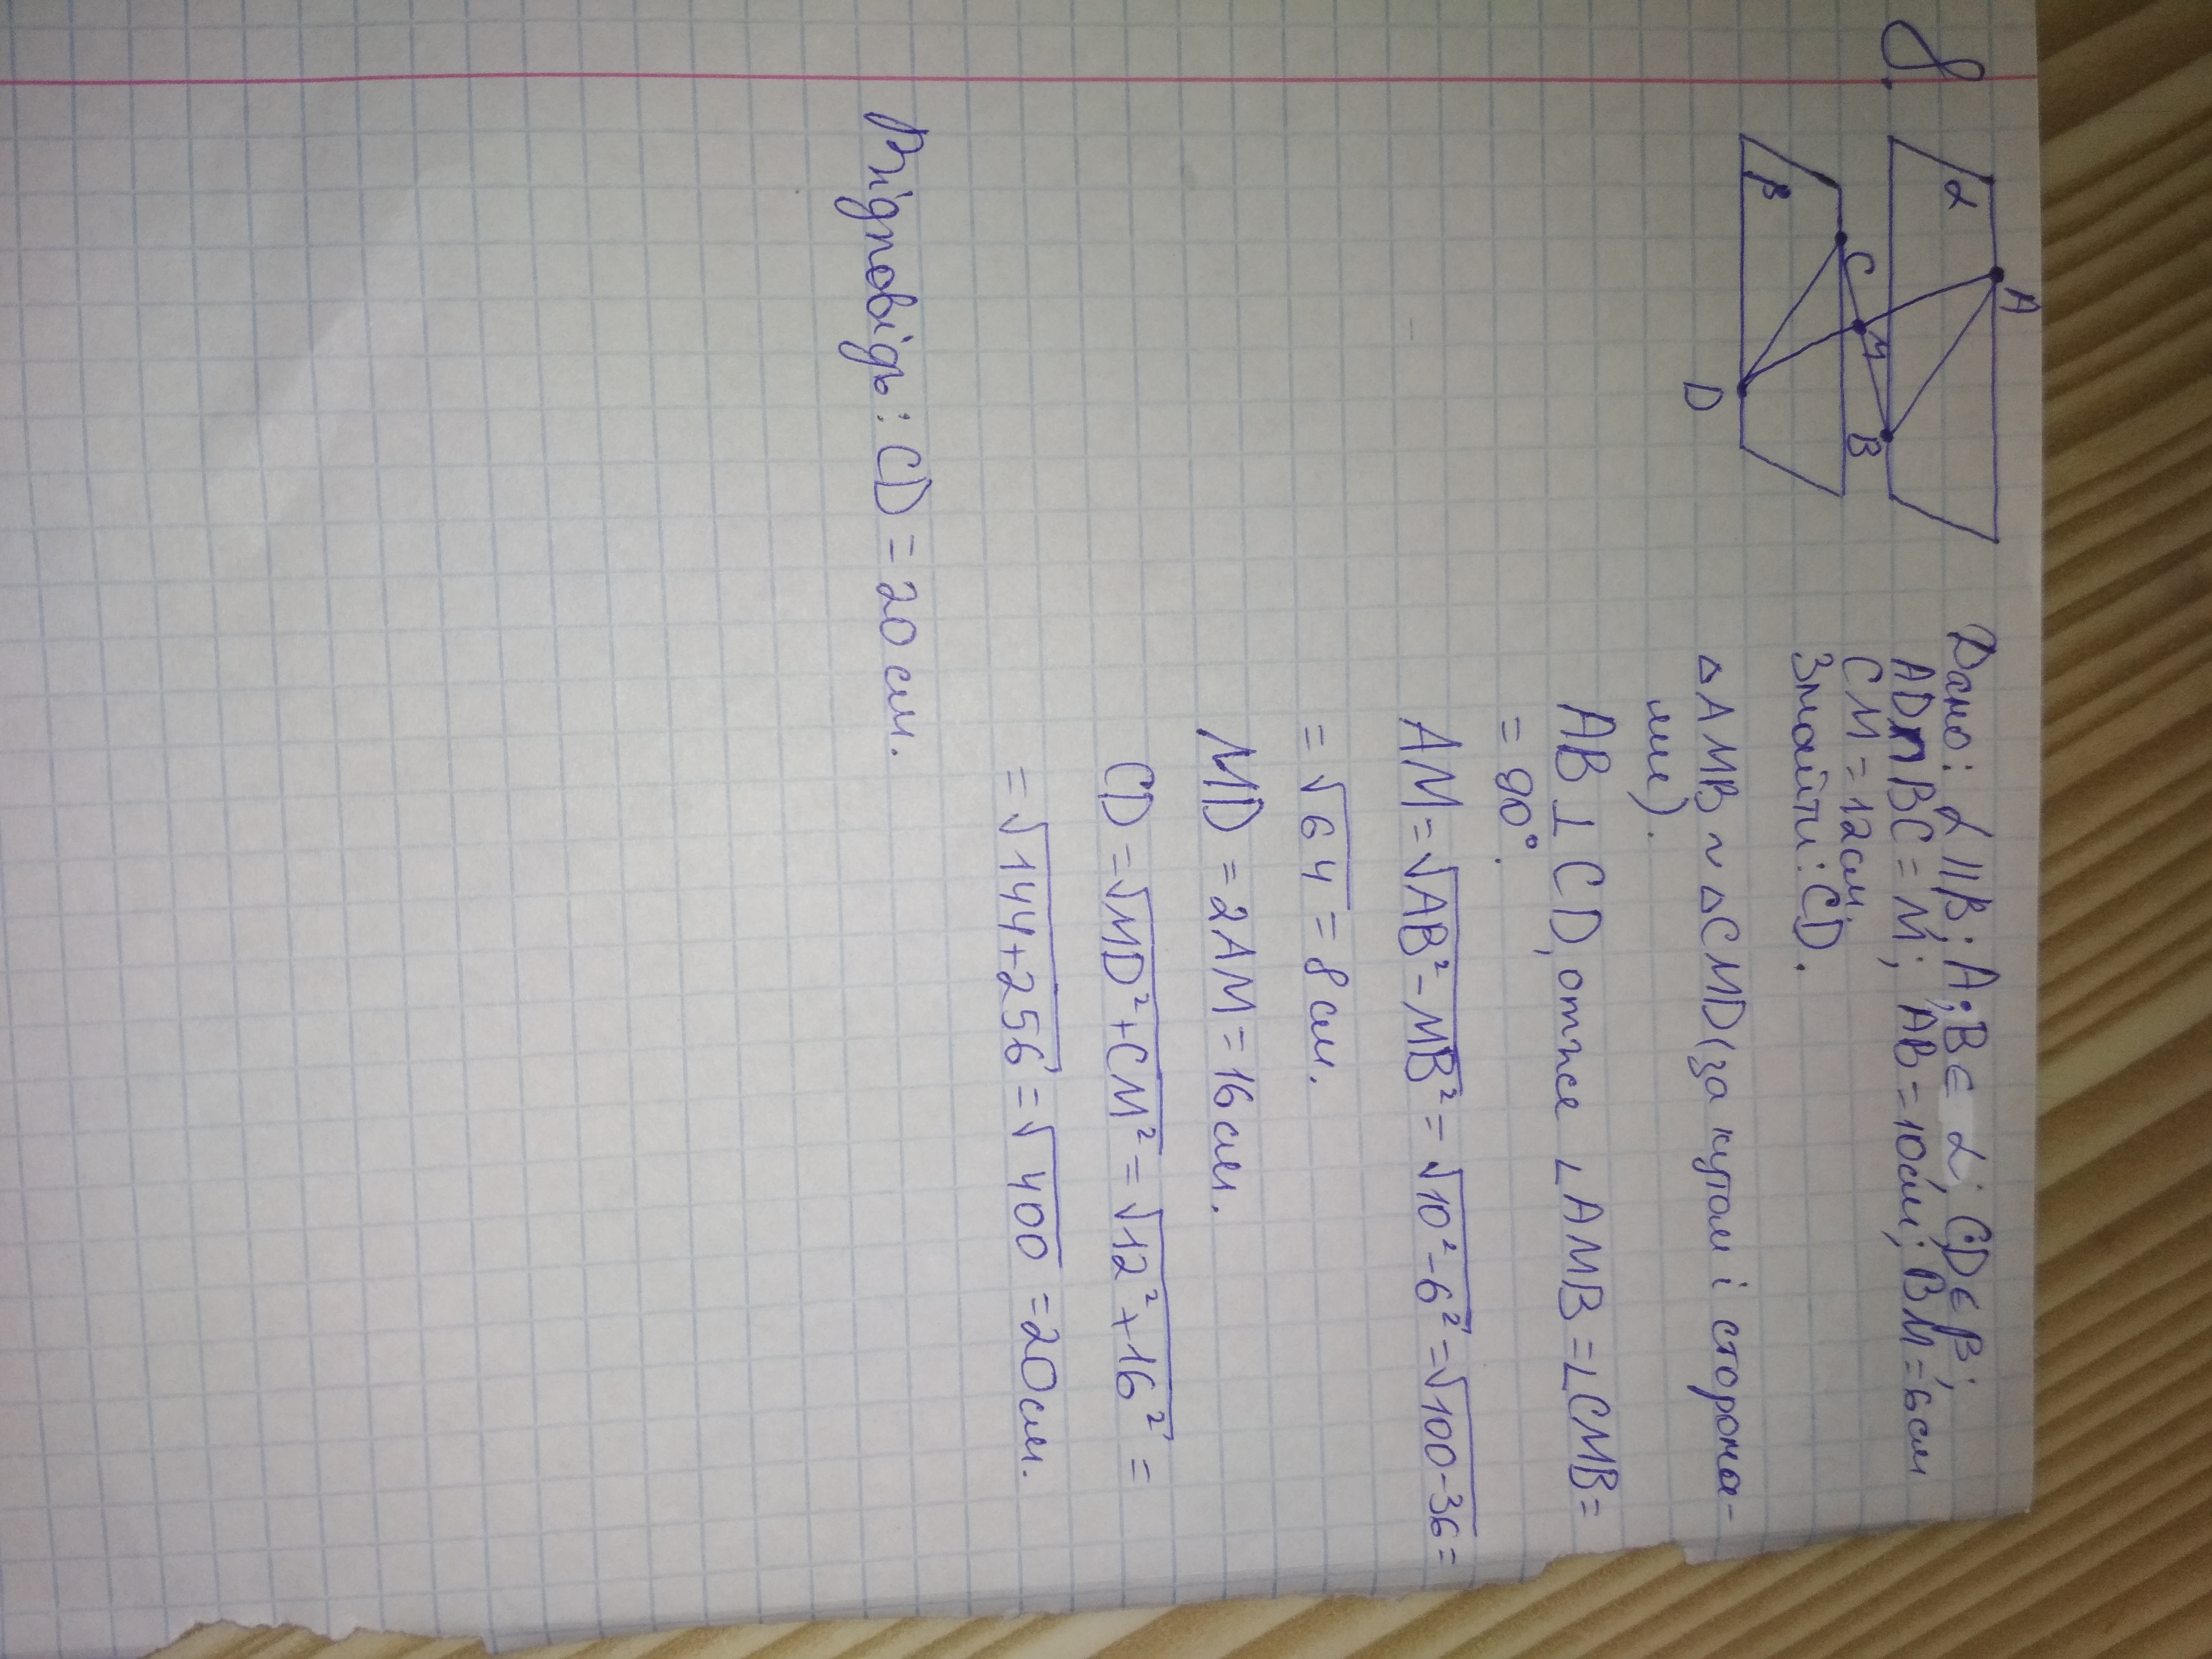 8.
α
A
B
β
C
M
D
Дано: α || β; A; B ∈ α; C; D ∈ β;
AD ∩ BC = M; AB = 10см; BM = 6см
CM = 12см.
Знайти: CD.
△AMB ~ △CMD (за кутом і сторона-
ми).
AB ⊥ CD, отже ∠AMB = ∠CMB =
= 90°.
AM = √AB² - MB² = √10² - 6² = √100 - 36 =
= √64 = 8 см.
MD = 2AM = 16 см.
CD = √MD² + CM² = √12² + 16² =
= √144 + 256 = √400 = 20 см.
Відповідь: CD = 20 см.